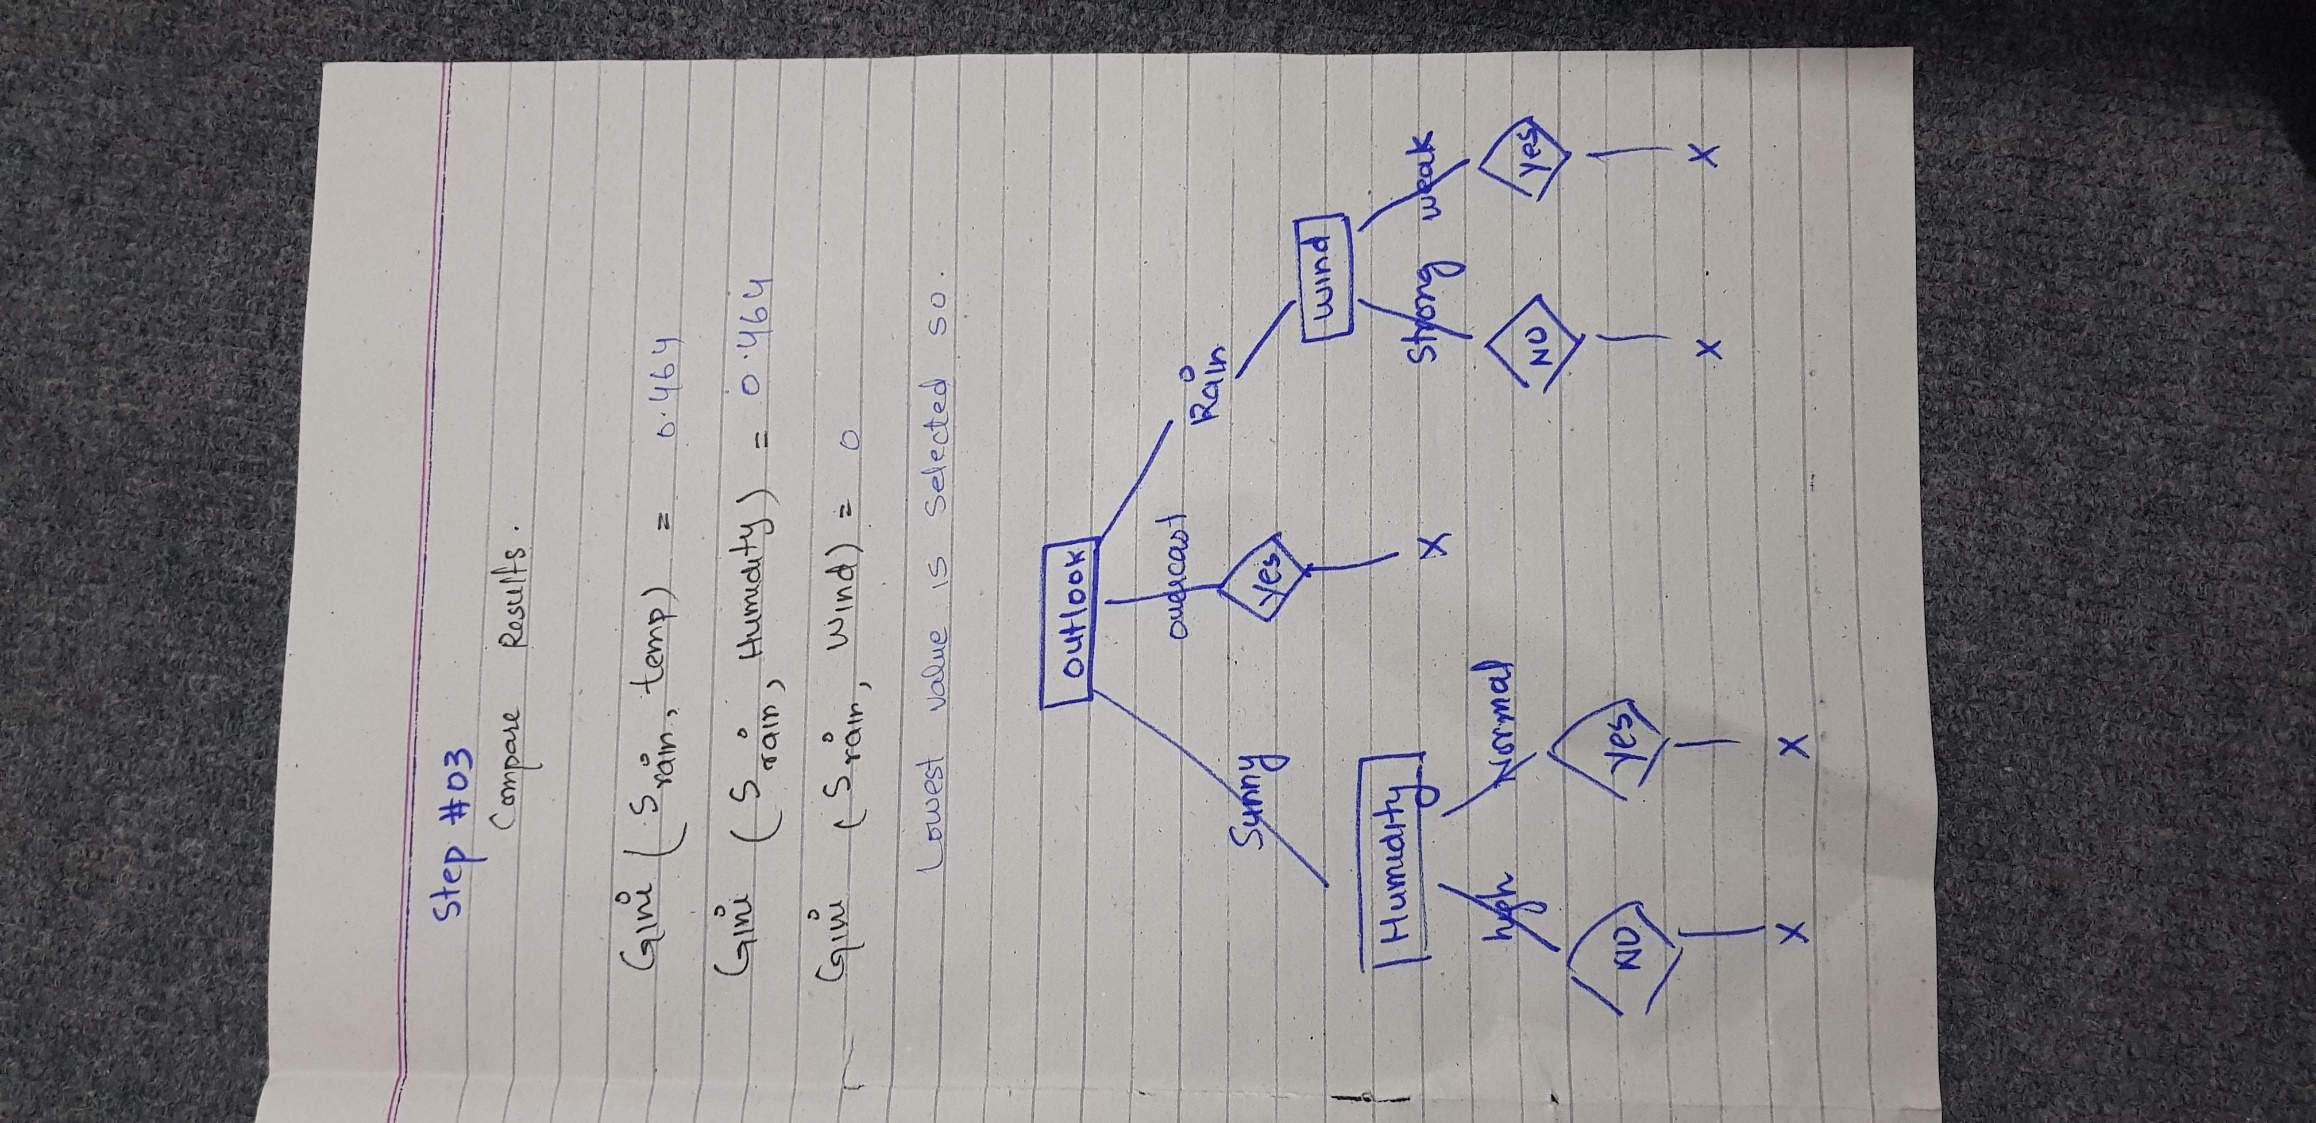 Step #03
Compare Results.
Gini (S rain, temp) = 0.464
Gini (S rain, Humidity) = 0.464
Gini (S rain, Wind) = 0
Lowest value is selected so.
Outlook
Sunny overcast Rain
Yes
X
Humidity
high Normal
NO Yes
X X
Wind
Strong weak
NO Yes
X X